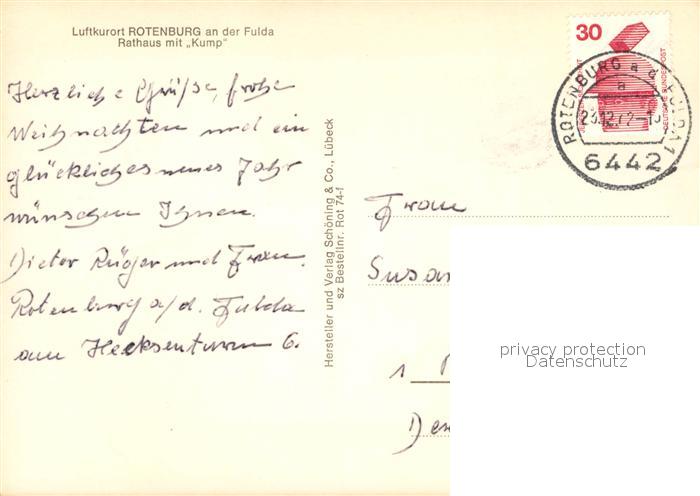 Luftkurort ROTENBURG an der Fulda
Rathaus mit „Kump"
Herzliche Grüße, frohe
Weihnachten und ein
glückliches neues Jahr
wünschen Ihnen
Dieter Rüger und Frau.
Rotenburg a/d. Fulda
am Hecksenturm 6.
Hersteller und Verlag Schöning & Co., Lübeck
sz Bestellnr. Rot 74-f
30
DEUTSCHE BUNDESPOST
ROTENBURG a d FULDA 1
a
6442
Frau
Susan
1
privacy protection
Datenschutz